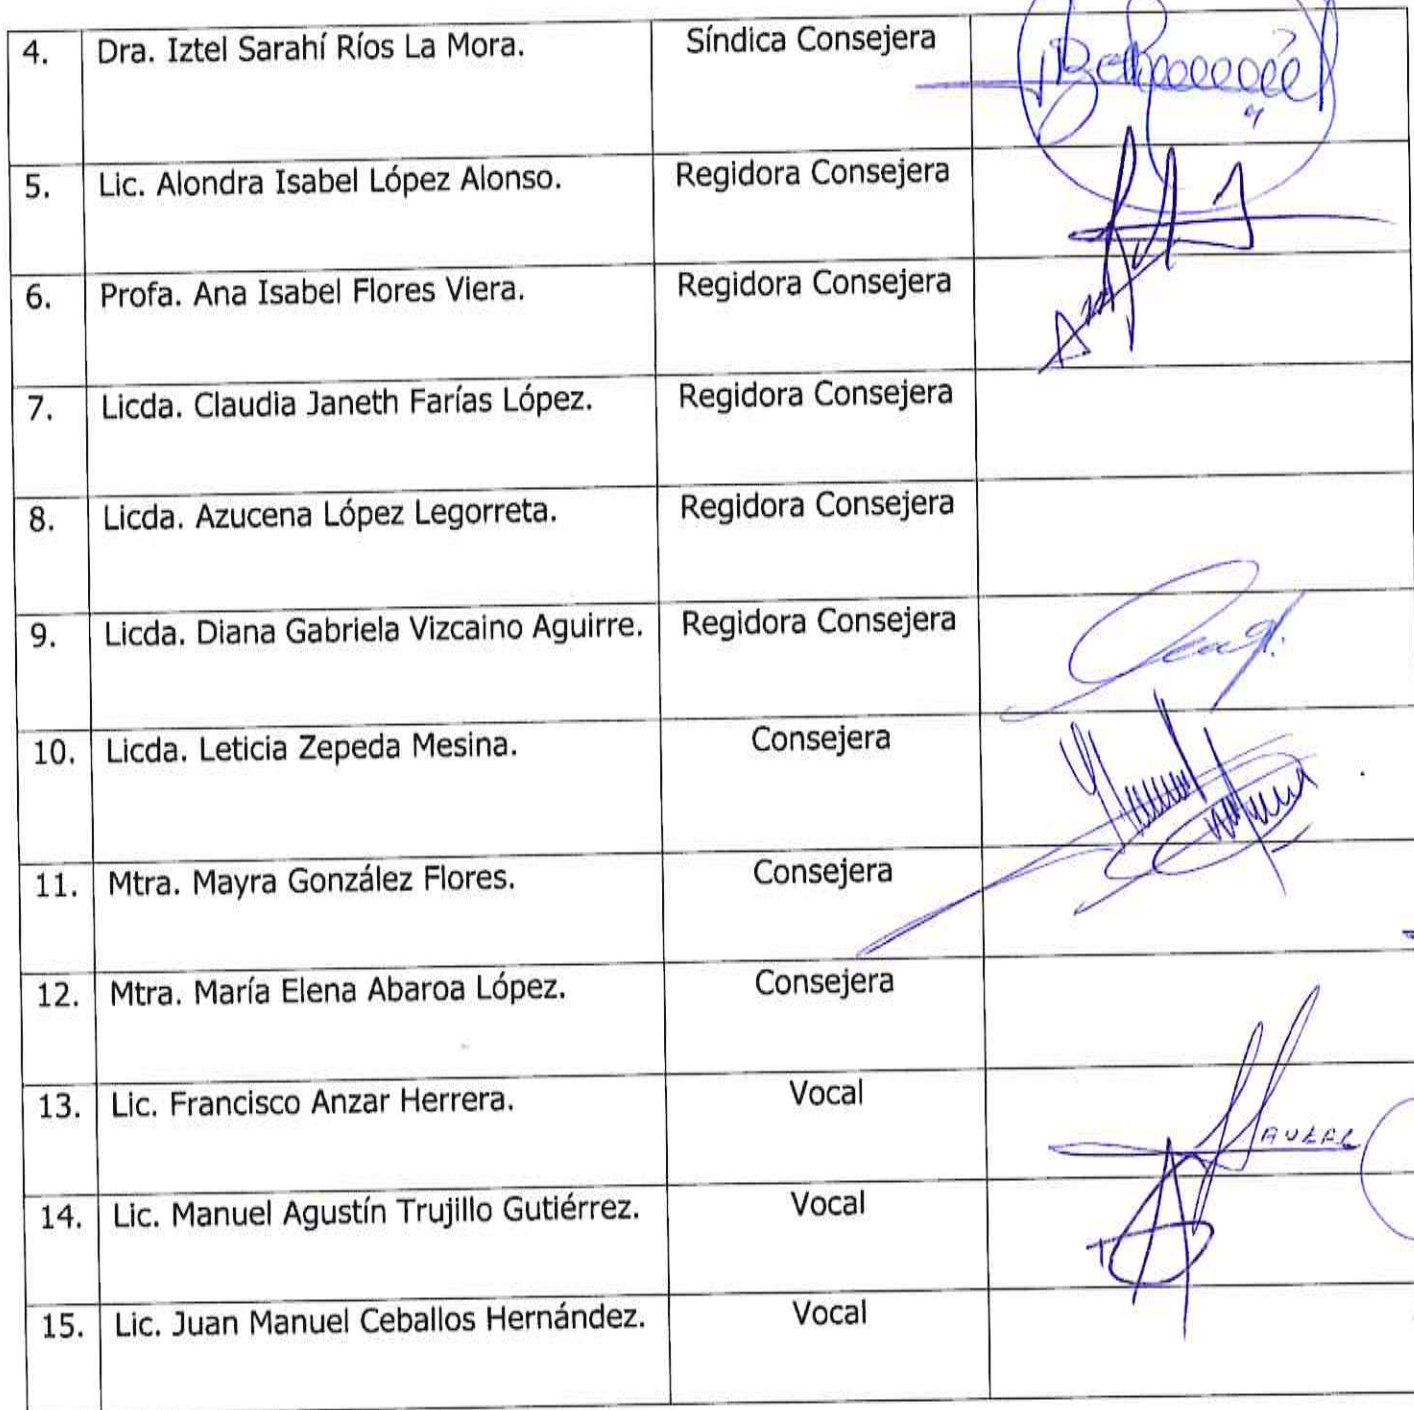 4. Dra. Iztel Sarahí Ríos La Mora. Síndica Consejera
5. Lic. Alondra Isabel López Alonso. Regidora Consejera
6. Profa. Ana Isabel Flores Viera. Regidora Consejera
7. Licda. Claudia Janeth Farías López. Regidora Consejera
8. Licda. Azucena López Legorreta. Regidora Consejera
9. Licda. Diana Gabriela Vizcaino Aguirre. Regidora Consejera
10. Licda. Leticia Zepeda Mesina. Consejera
11. Mtra. Mayra González Flores. Consejera
12. Mtra. María Elena Abaroa López. Consejera
13. Lic. Francisco Anzar Herrera. Vocal
14. Lic. Manuel Agustín Trujillo Gutiérrez. Vocal
15. Lic. Juan Manuel Ceballos Hernández. Vocal